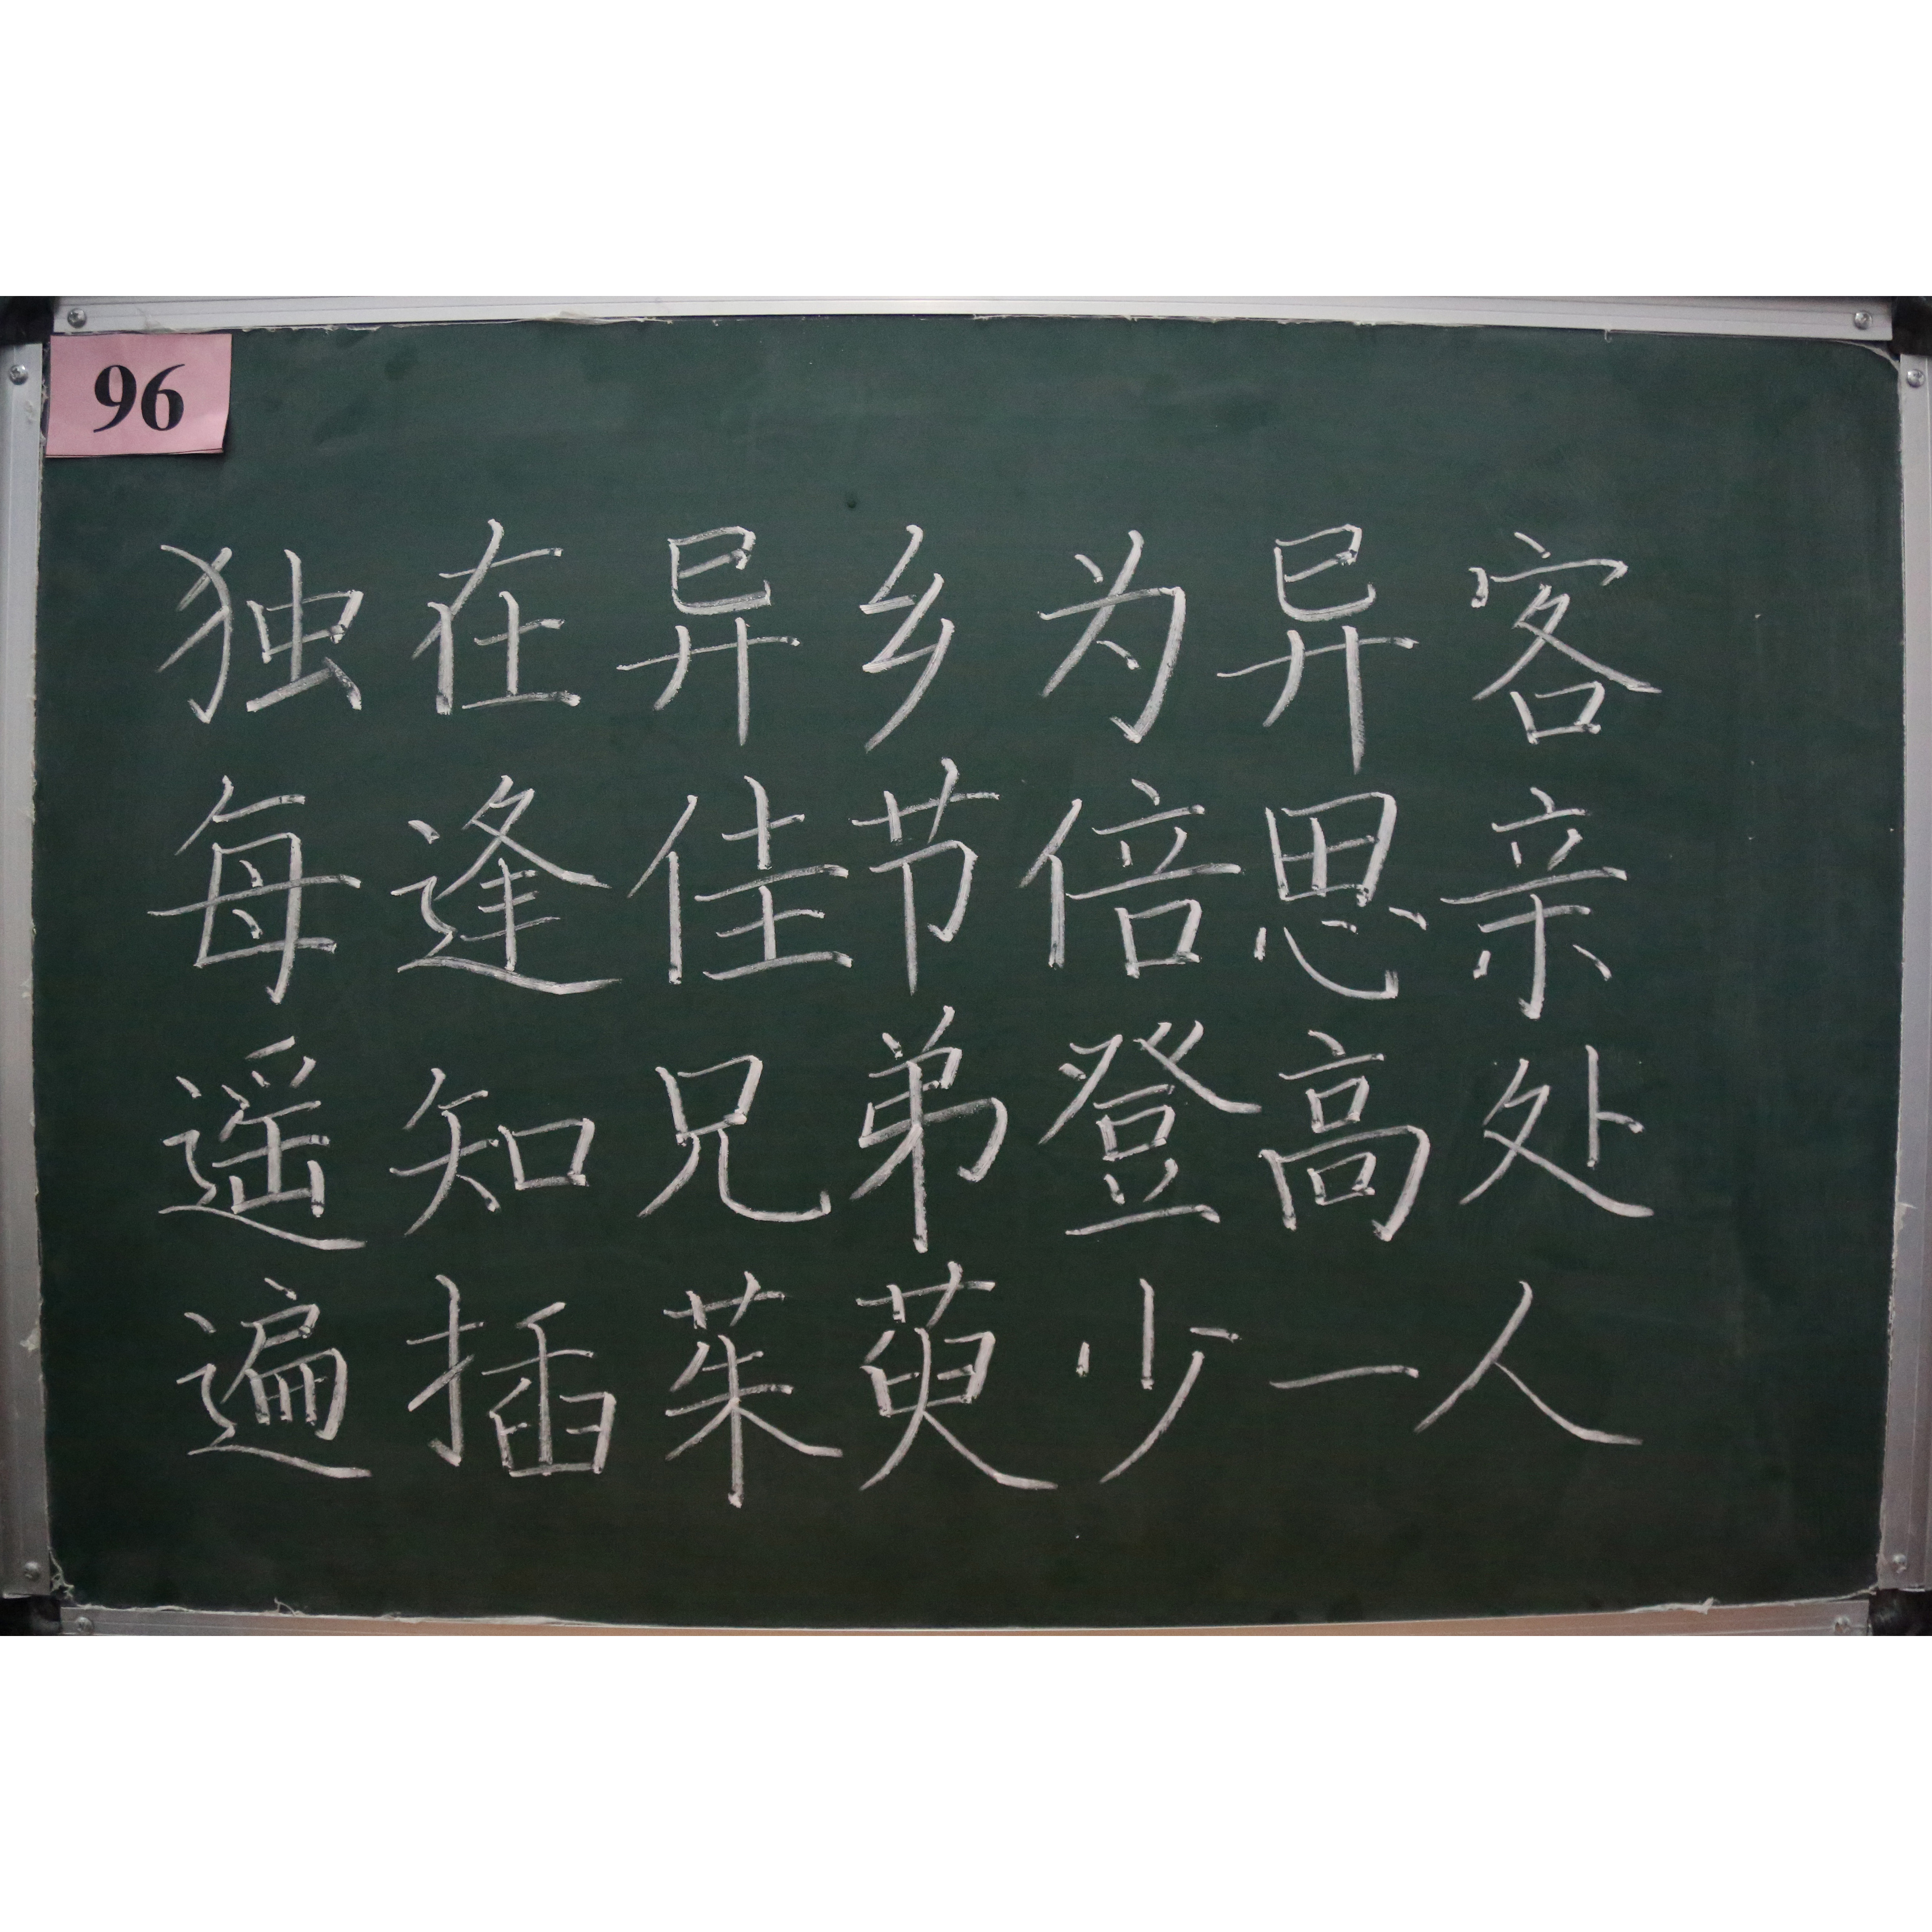 96
独在异乡为异客
每逢佳节倍思亲
遥知兄弟登高处
遍插茱萸少一人